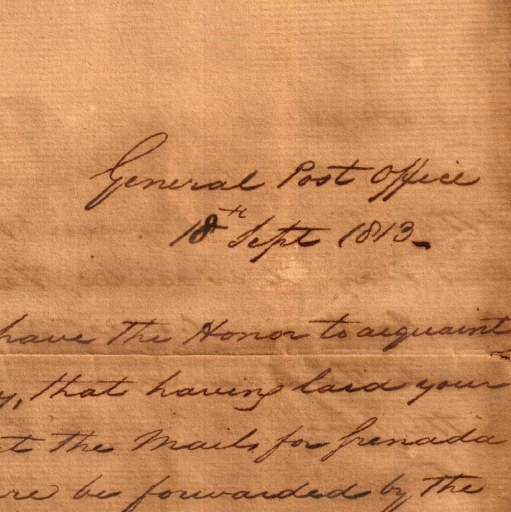 General Post Office
18th Sept 1813.
have the Honor to acquaint
y, that having laid your
t the Mails for Grenada
re be forwarded by the